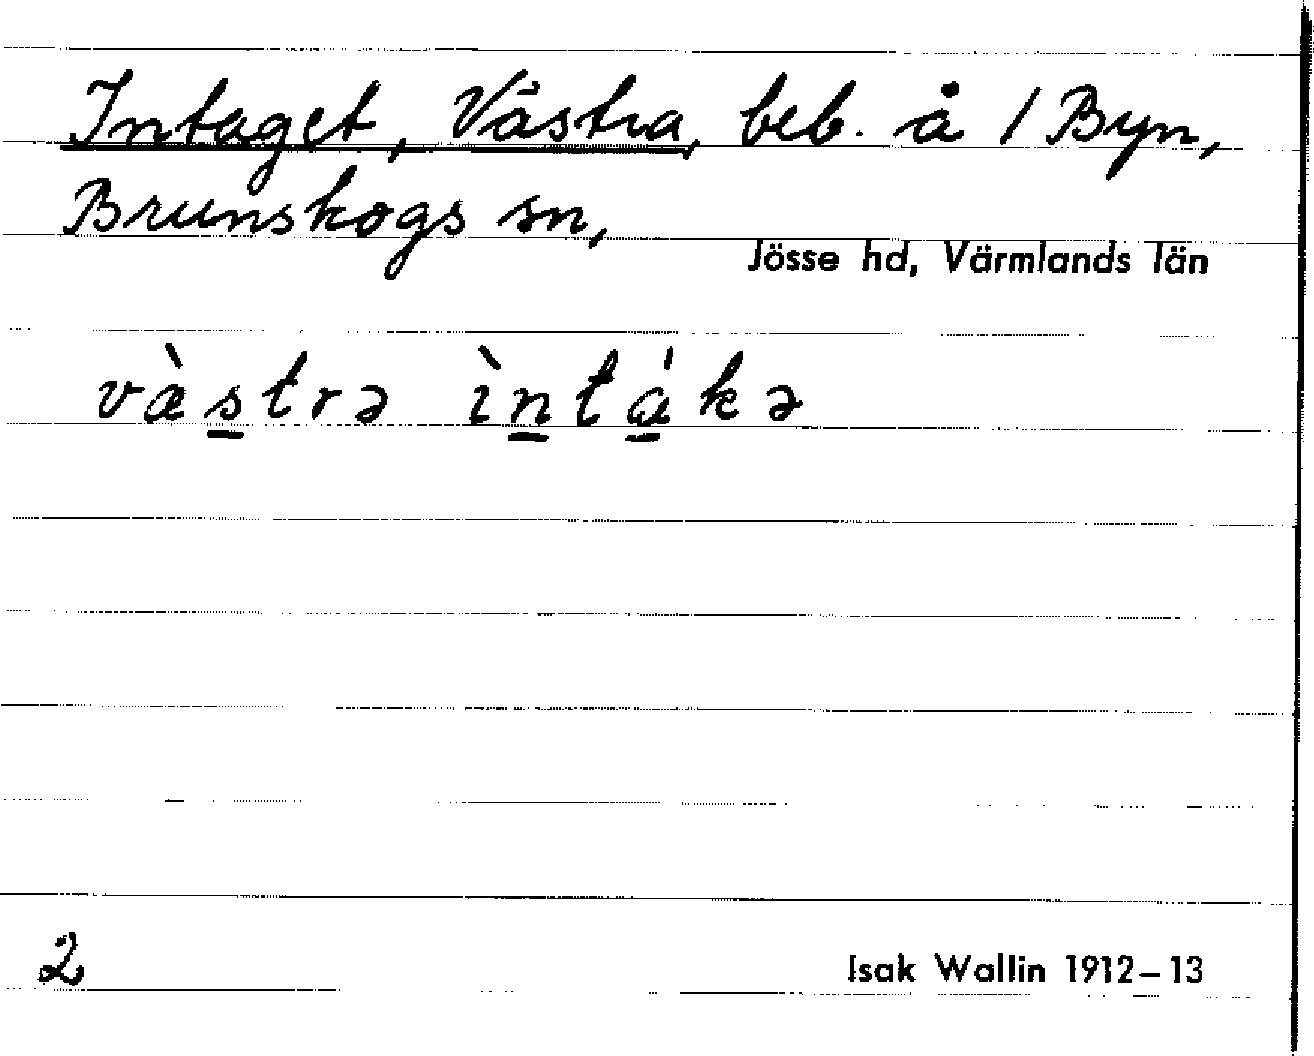 Intaget, Västra, beb. å 1 Byn,
Brunskogs sn,
Jösse hd, Värmlands län
væ̀strə ìntákə
2
Isak Wallin 1912–13